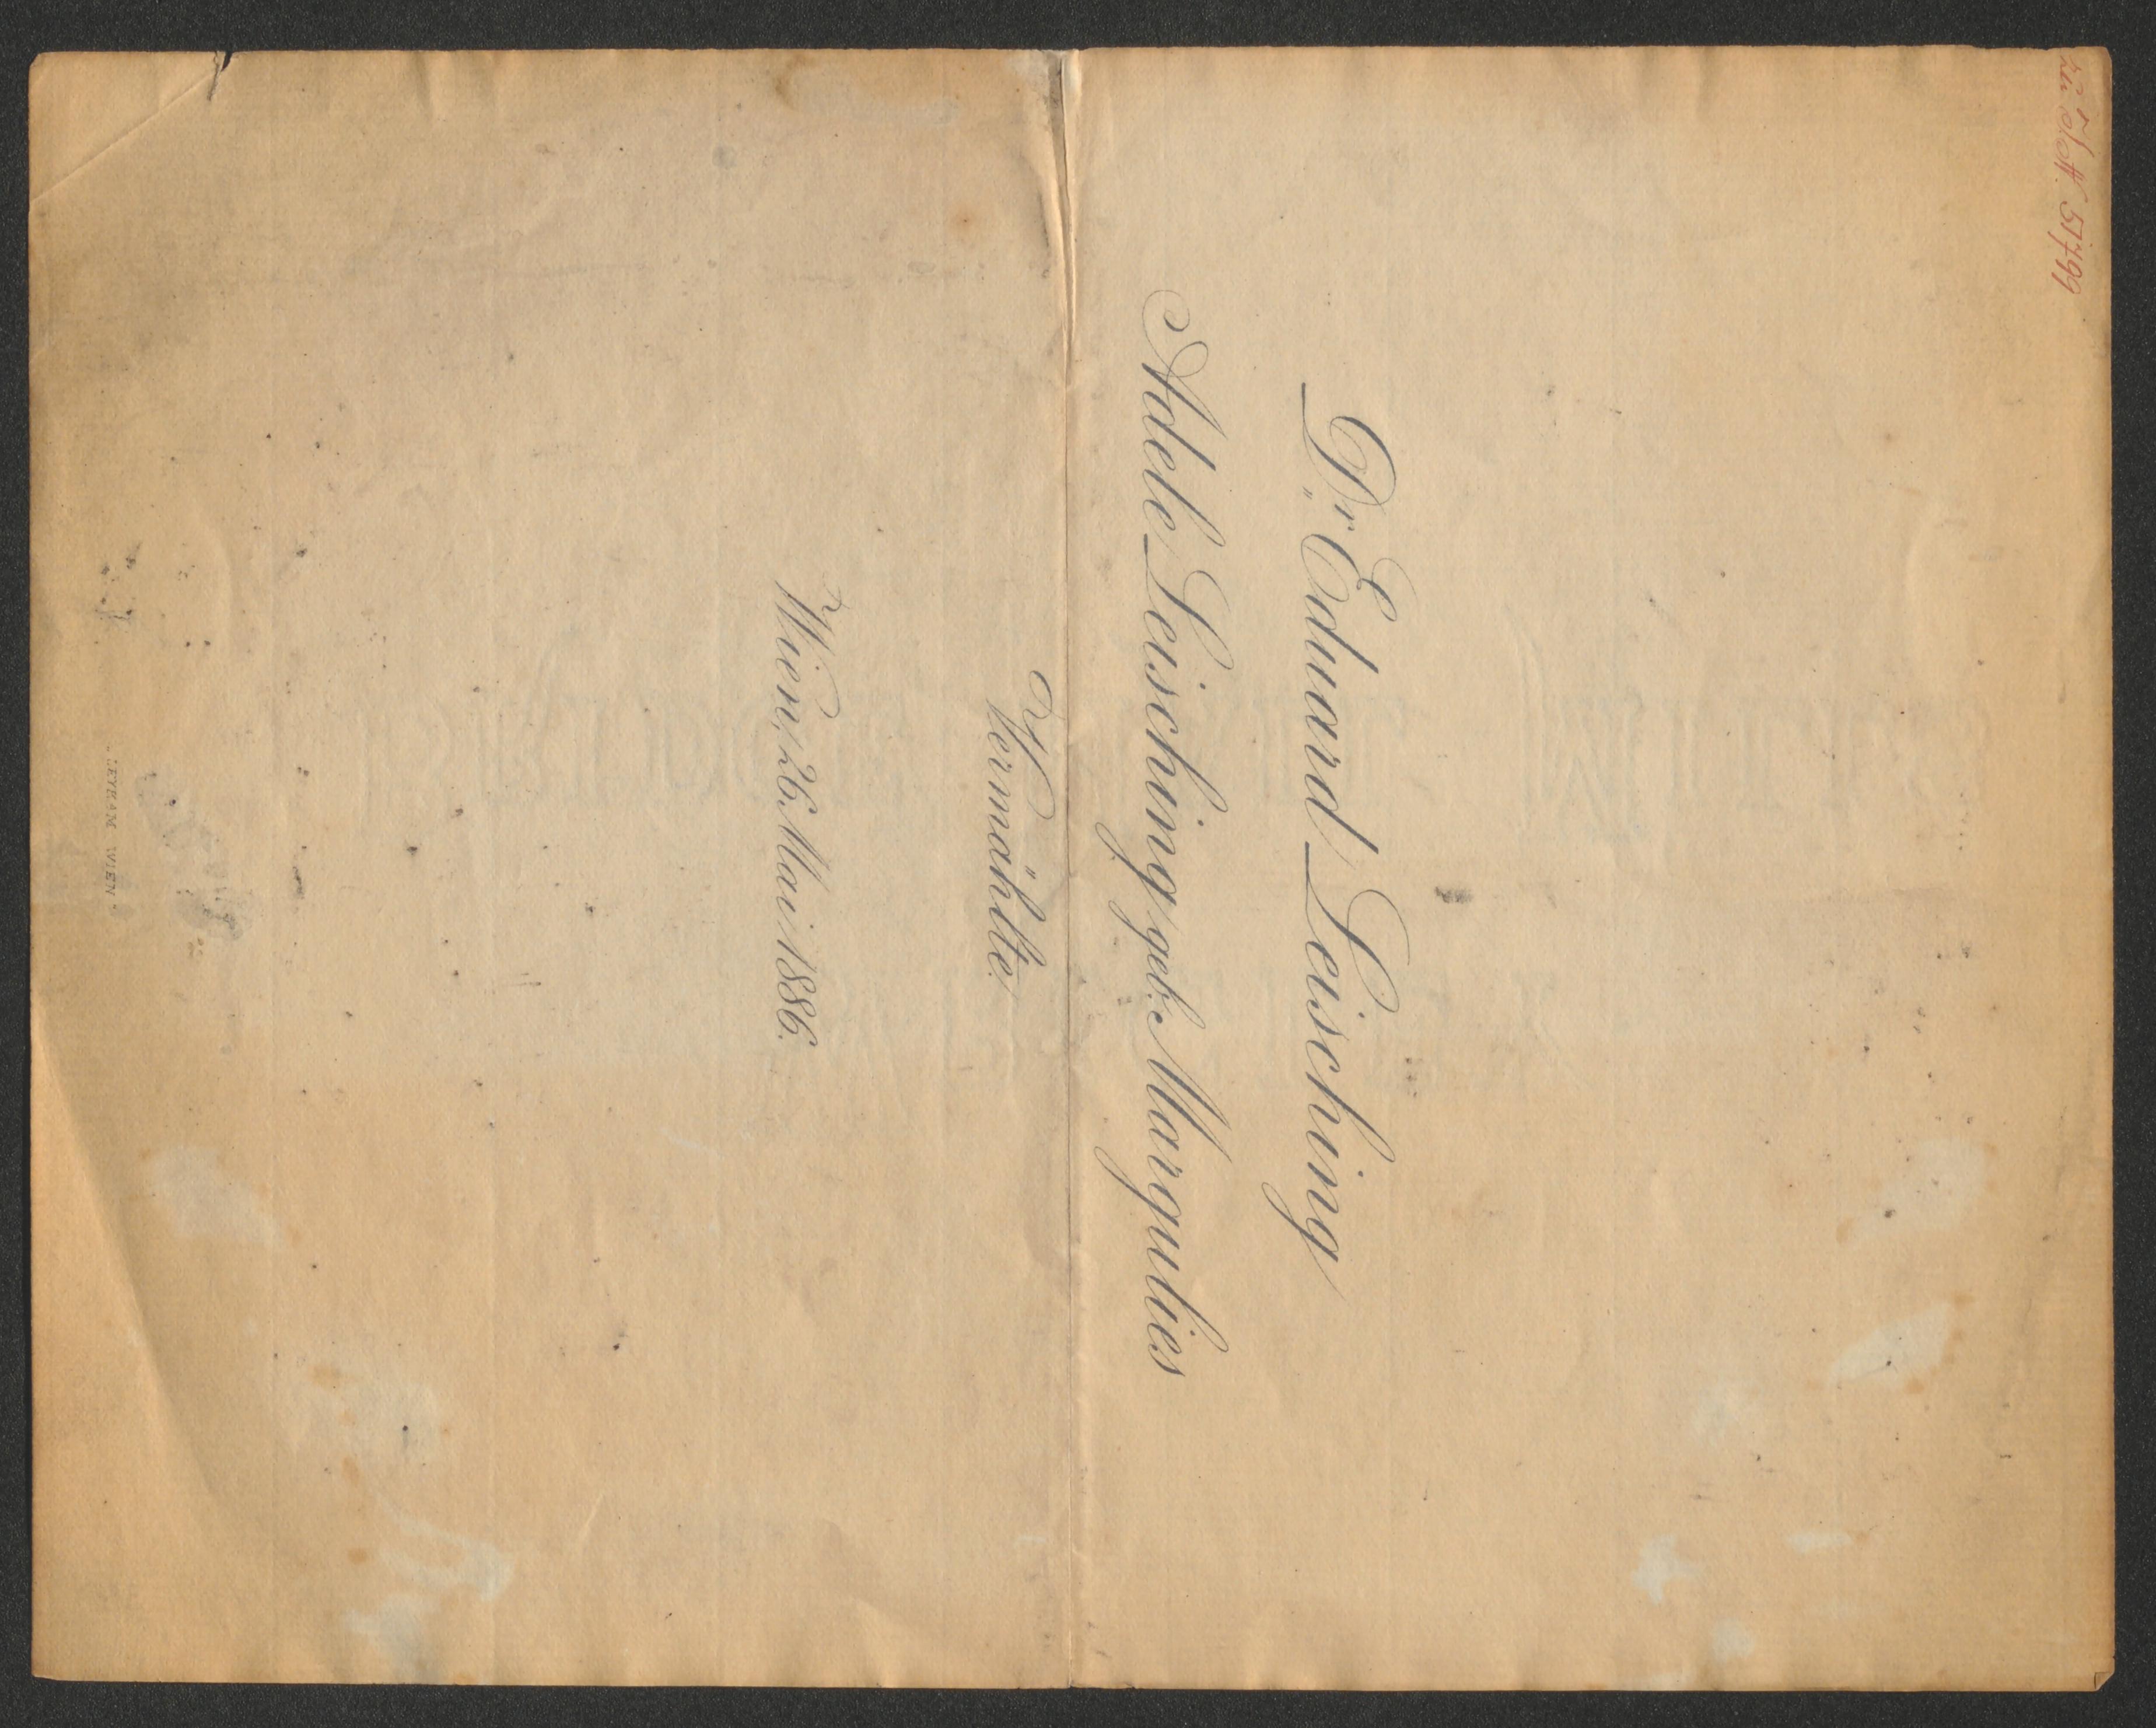 Dr. Eduard Leisching
Adele Leisching geb. Margulies
Vermählte.
Wien, 26. Mai 1886.
LEYKAM WIEN